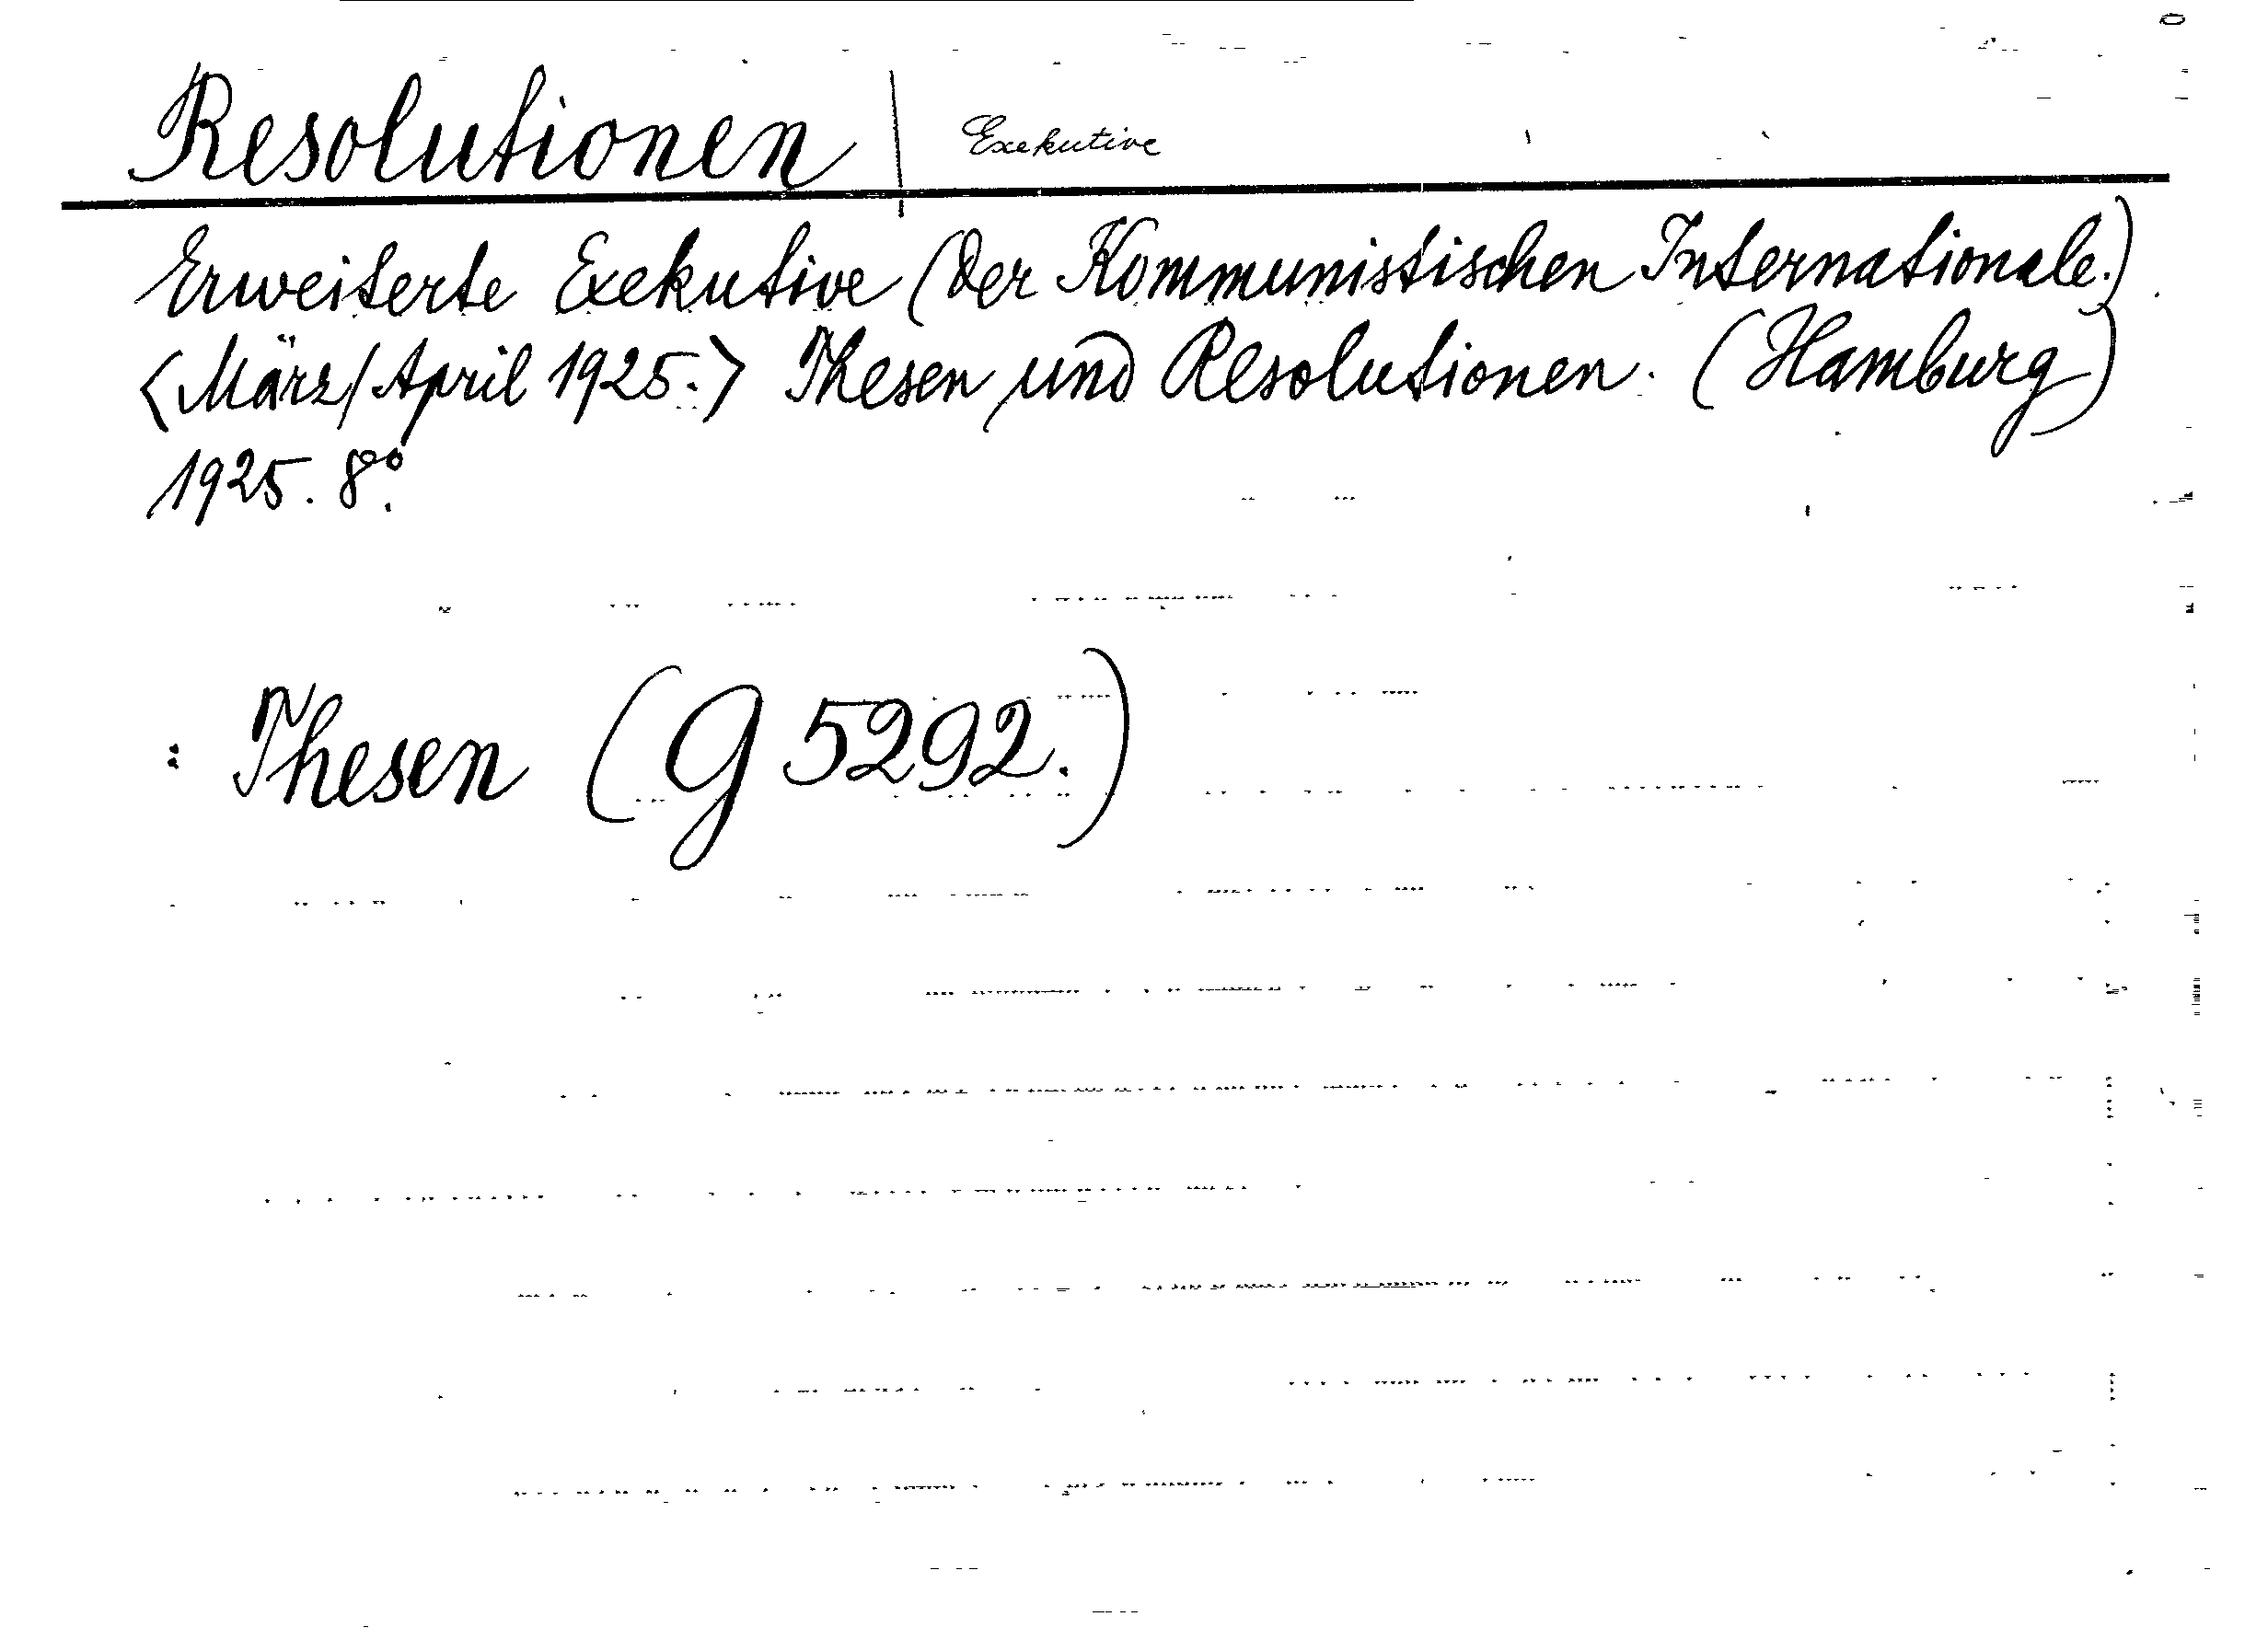 Resolutionen | Exekutive
Erweiterte Exekutive (der Kommunistischen Internationale.)
<März/April 1925.> Thesen und Resolutionen. (Hamburg)
1925. 8°.
: Thesen (G 5292.)